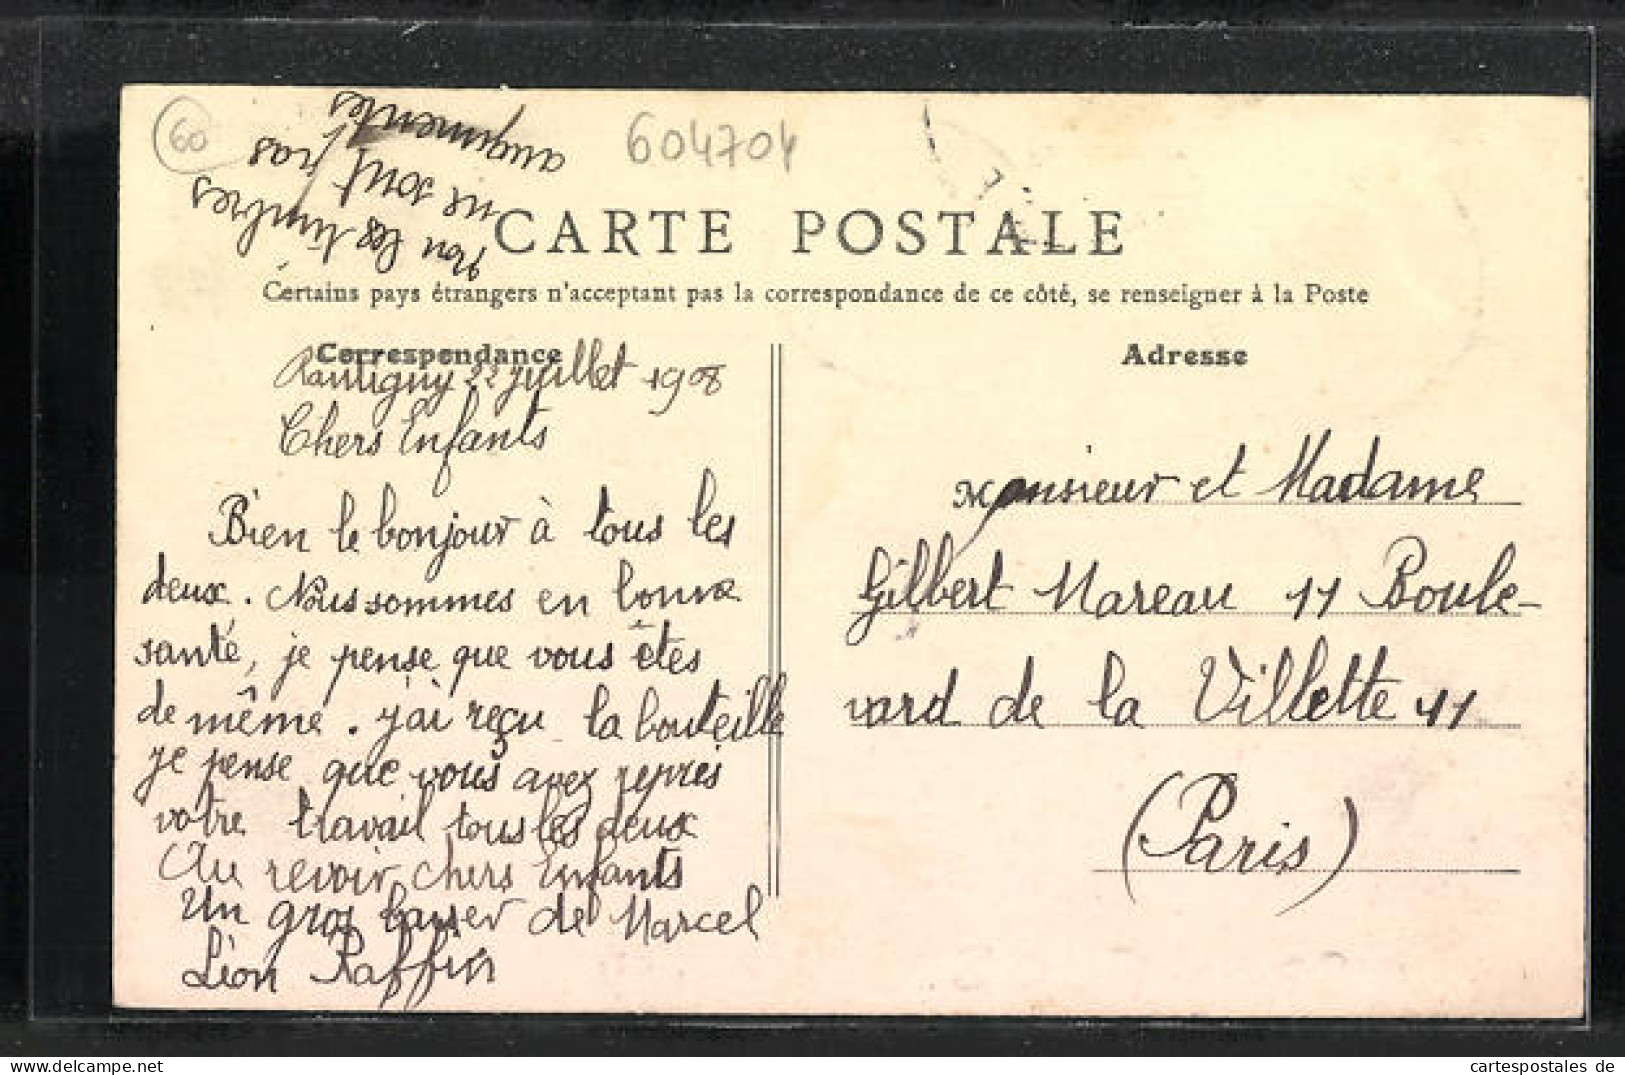 60
604704
Non les timbres
ne sont pas
augmentés
CARTE POSTALE
Certains pays étrangers n'acceptent pas la correspondance de ce côté, se renseigner à la Poste
Correspondance
Rantigny 22 Juillet 1908
Chers Enfants
Bien le bonjour à tous les
deux. Nous sommes en bonne
santé, je pense que vous êtes
de même. j'ai reçu la bouteille
je pense que vous avez repris
votre travail tous les deux
Au revoir chers Enfants
Un gros baiser de Marcel
Léon Raffin
Adresse
Monsieur et Madame
Gilbert Mareau 11 Boule-
vard de la Villette 11
(Paris)
cartespostales de